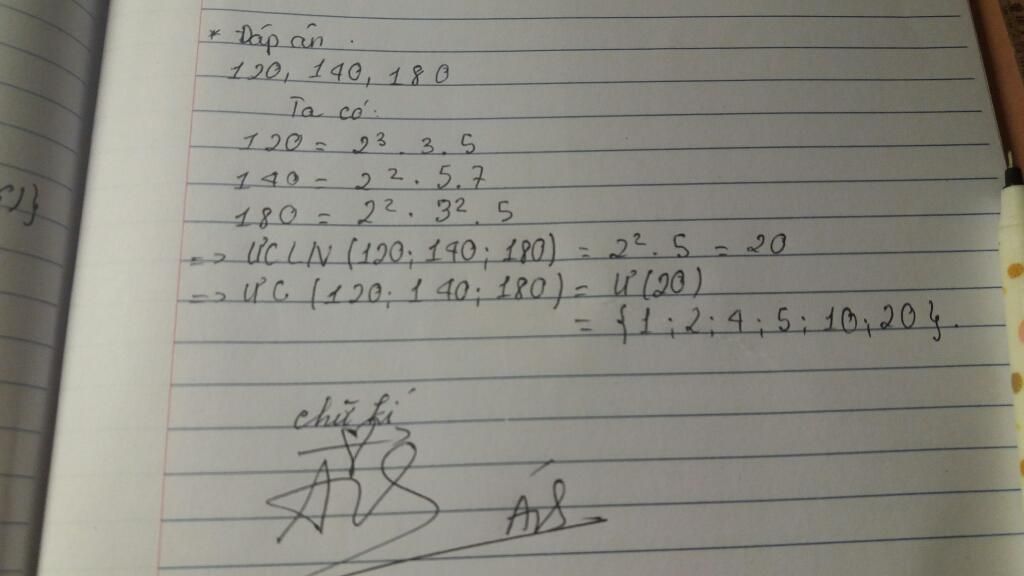 * Đáp án.
120, 140, 180
Ta có:
120 = 2³ . 3 . 5
140 = 2² . 5 . 7
180 = 2² . 3² . 5
=> ƯCLN (120; 140; 180) = 2² . 5 = 20
=> ƯC (120; 140; 180) = Ư(20)
= {1 ; 2 ; 4 ; 5 ; 10 ; 20}.
chữ kí